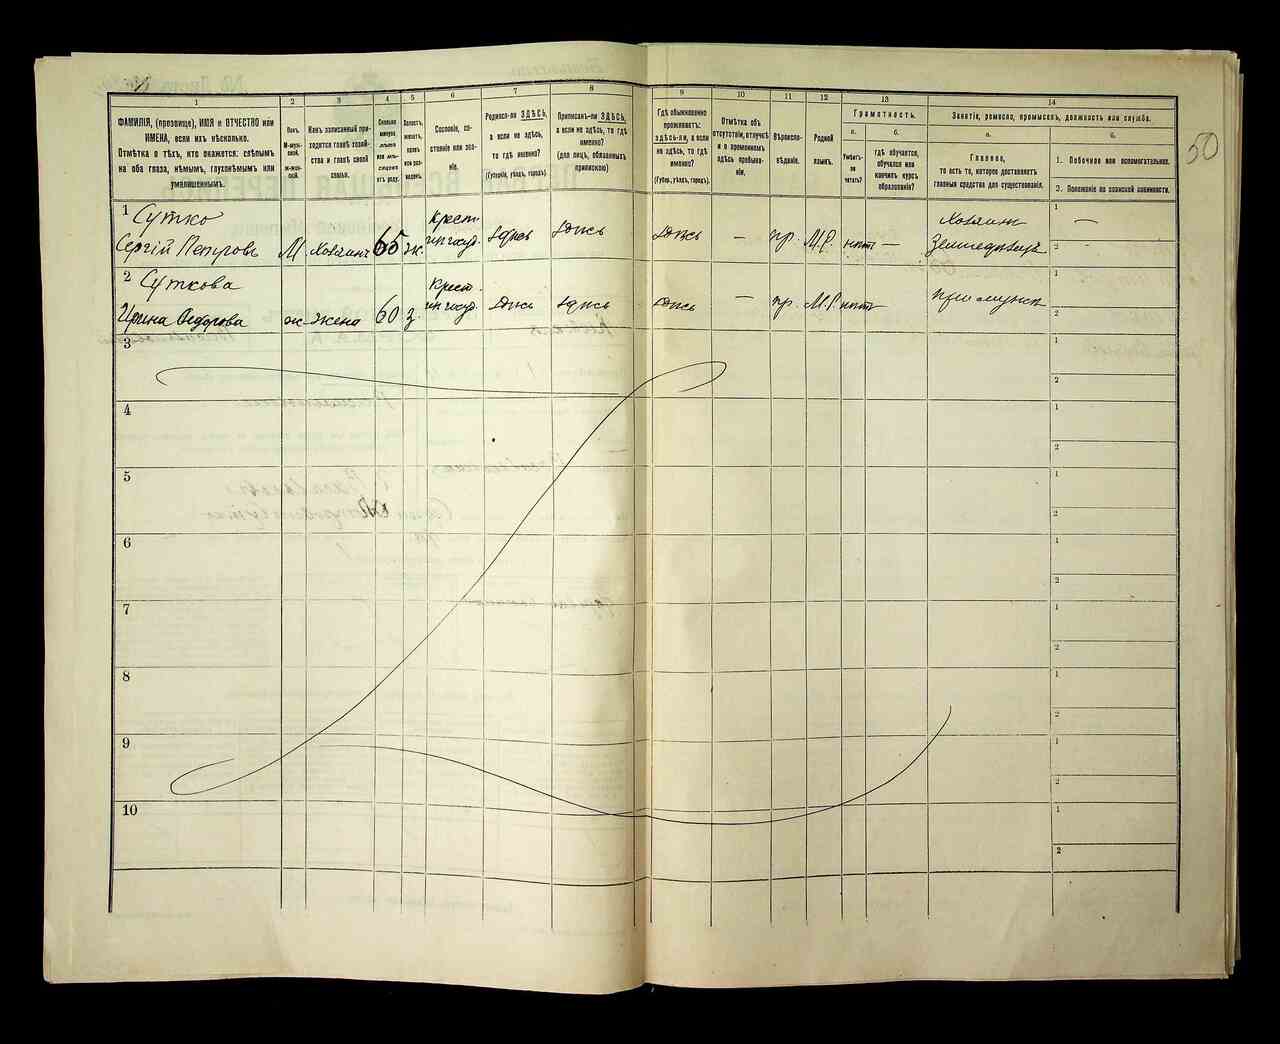 50
1 2 3 4 5 6 7 8 9 10 11 12 13 14
ФАМИЛІЯ, (прозвище), ИМЯ и ОТЧЕСТВО или
ИМЕНА, если ихъ нѣсколько.
Отмѣтка о тѣхъ, кто окажется: слѣпымъ
на оба глаза, нѣмымъ, глухонѣмымъ или
умалишеннымъ.
Полъ.
М-муж-
ской.
Ж-жен-
скій.
Какъ записанный при-
ходится главѣ хозяй-
ства и главѣ своей
семьи.
Сколько
минуло
лѣтъ
или мѣ-
сяцевъ
отъ роду.
Холостъ,
женатъ,
вдовъ
или раз-
веденъ.
Сословіе, со-
стояніе или зва-
ніе.
Родился-ли ЗДѢСЬ,
а если не здѣсь,
то гдѣ именно?
(Губернія, уѣздъ, городъ).
Приписанъ-ли ЗДѢСЬ,
а если не здѣсь, то гдѣ
именно?
(для лицъ, обязанныхъ
припискою)
Гдѣ обыкновенно
проживаетъ:
здѣсь-ли, а если
не здѣсь, то гдѣ
именно?
(Губер., уѣздъ, городъ).
Отмѣтка объ
отсутствіи, отлучкѣ
и о временномъ
здѣсь пребыва-
ніи.
Вѣроиспо-
вѣданіе.
Родной
языкъ.
Грамотность.
а.
Умѣетъ-
ли
читать?
б.
гдѣ обучается,
обучался или
кончилъ курсъ
образованія?
Занятіе, ремесло, промыселъ, должность или служба.
а.
Главное,
то есть то, которое доставляетъ
главныя средства для существованія.
б.
1. Побочное или вспомогательное.
2. Положеніе по воинской повинности.
1 Сутко
Сергій Петровъ М Хозяинъ 65 ж. Крест. Здѣсь Здѣсь Здѣсь — пр. М.Р. нѣтъ — Хозяинъ 1 —
2
2 Суткова
Ирина Ѳедорова ж жена 60 з. Крест. Здѣсь Здѣсь Здѣсь — пр. М.Р. нѣтъ 1
2
3 1
2
4 1
2
5 1
2
6 1
2
7 1
2
8 1
2
9 1
2
10 1
2